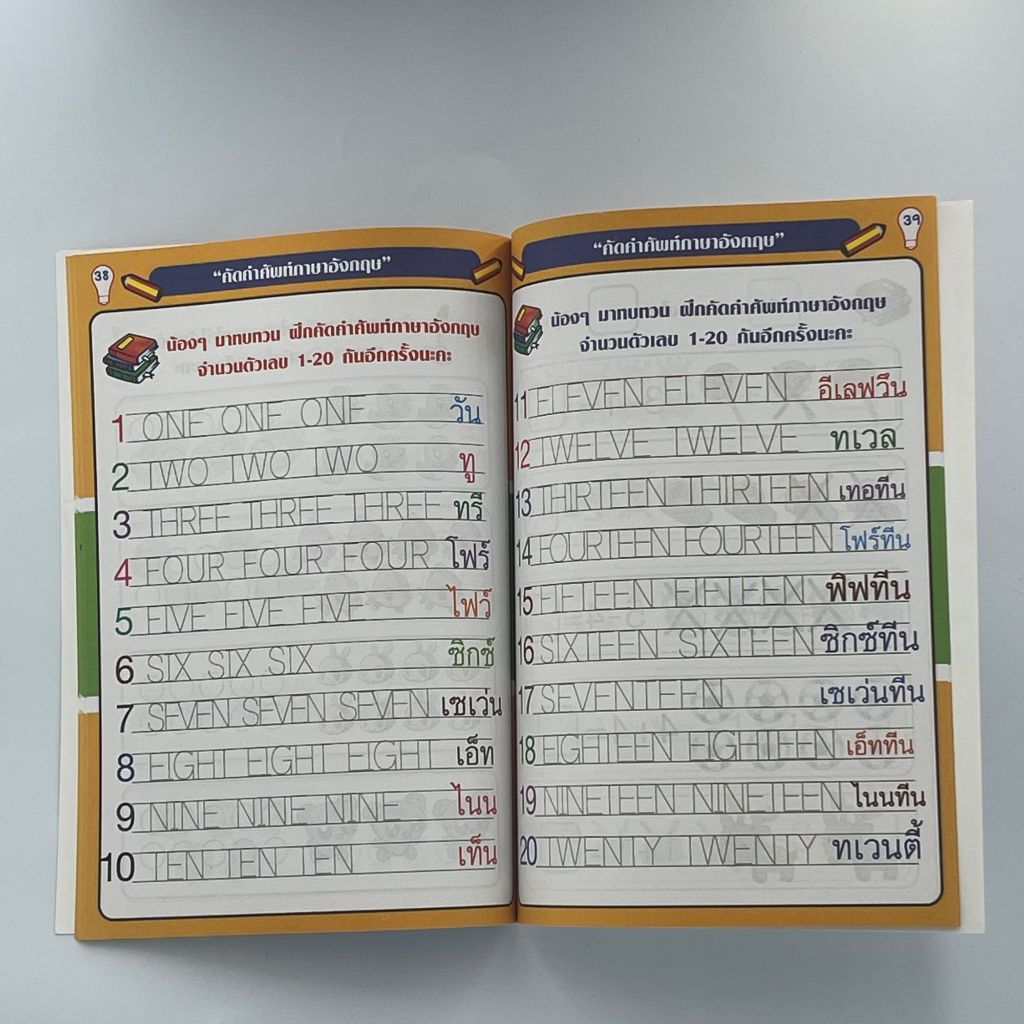 38
“คัดคำศัพท์ภาษาอังกฤษ”
น้องๆ มาทบทวน ฝึกคัดคำศัพท์ภาษาอังกฤษ
จำนวนตัวเลข 1-20 กันอีกครั้งนะคะ
1 ONE ONE ONE วัน
2 TWO TWO TWO ทู
3 THREE THREE THREE ทรี
4 FOUR FOUR FOUR โฟร์
5 FIVE FIVE FIVE ไฟว์
6 SIX SIX SIX ซิกซ์
7 SEVEN SEVEN SEVEN เซเว่น
8 EIGHT EIGHT EIGHT เอ็ท
9 NINE NINE NINE ไนน
10 TEN TEN TEN เท็น
39
“คัดคำศัพท์ภาษาอังกฤษ”
น้องๆ มาทบทวน ฝึกคัดคำศัพท์ภาษาอังกฤษ
จำนวนตัวเลข 1-20 กันอีกครั้งนะคะ
11 ELEVEN ELEVEN อีเลฟวึน
12 TWELVE TWELVE ทเวล
13 THIRTEEN THIRTEEN เทอทีน
14 FOURTEEN FOURTEEN โฟร์ทีน
15 FIFTEEN FIFTEEN ฟิฟทีน
16 SIXTEEN SIXTEEN ซิกซ์ทีน
17 SEVENTEEN เซเว่นทีน
18 EIGHTEEN EIGHTEEN เอ็ททีน
19 NINETEEN NINETEEN ไนนทีน
20 TWENTY TWENTY ทเวนตี้